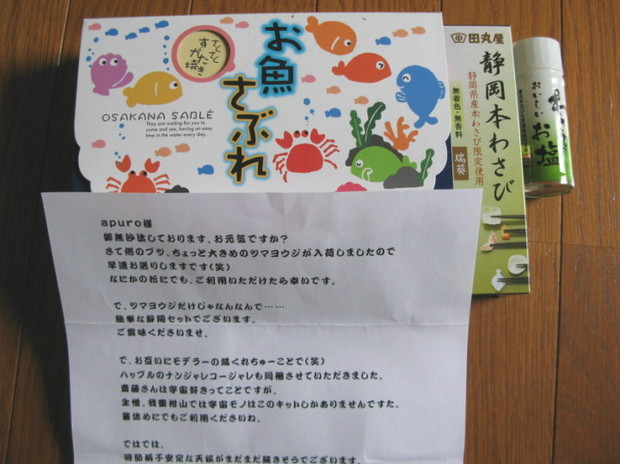 さくさく
すがた
焼き
お魚
さぶれ
OSAKANA SABLÉ
They are waiting for you to
come and see, having an easy
time in the water every day.
田丸屋
静岡本わさび
静岡県産本わさび限定使用
無着色・無香料
瑞葵
おいしいお塩
apuro様
御無沙汰しております、お元気ですか?
さて例のブツ、ちょっと大きめのツマヨウジが入荷しましたので
早速お送りしますです(笑)
なにかの折にでも、ご利用いただけたら幸いです。
で、ツマヨウジだけじゃなんなんで……
簡単な静岡セットでございます。
ご賞味くださいませ。
で、お互いにモデラーの端くれちゅーことで(笑)
ハッブルのナンジャレコージャレも同梱させていただきました。
齋藤さんは宇宙好きってことですが、
生憎、我が山では宇宙モノはこのキットしかありませんですた。
箸休めにでもご利用くださいね。
ではでは、
時節柄不安定な天候がまだまだ続きそうでございます。